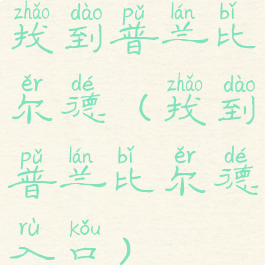 zhǎo dào pǔ lán bǐ
找到普兰比
ěr dé zhǎo dào
尔德(找到
pǔ lán bǐ ěr dé
普兰比尔德
rù kǒu
入口)